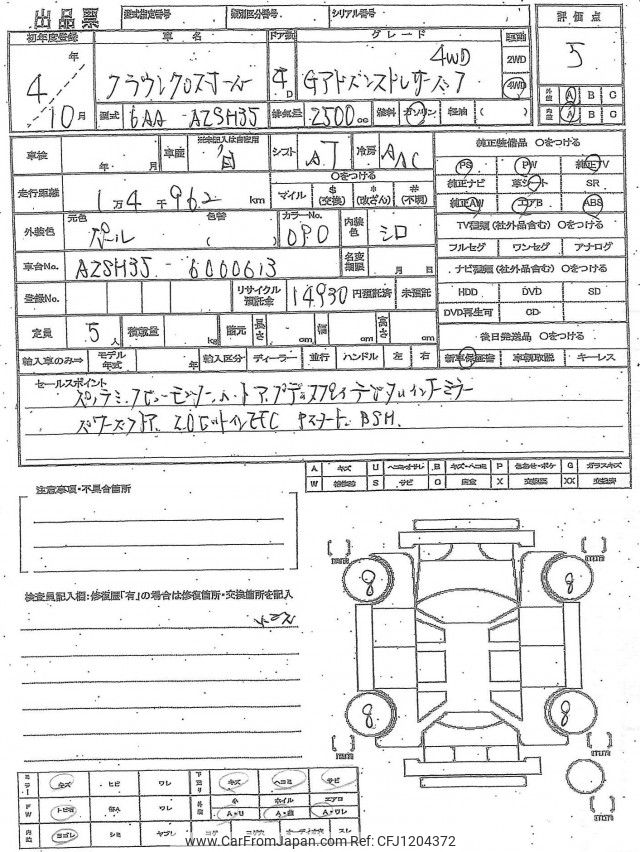 出品票 型式指定番号 類別区分番号 シリアル番号
初年度登録 車名 ドア数 グレード 駆動 評価点
4年 10月 クラウンクロスオーバー 4D 4WD 2WD 4WD 5
Gアドバンストレザーパッケ
型式 6AA - AZSH35 排気量 2500cc 燃料 ガソリン 軽油 ( )
外装 A B C
内装 A B C
車検 年 月 車歴 ※未記入は自家用 自 シフト AT 冷房 AAC 純正装備品 ○をつける
PS PW 純正TV
走行距離 1万4千962km ○をつける マイル $(交換) *(改ざん) #(不明) 純正ナビ 革シート SR
純正AW エアB ABS
外装色 元色 パール 色替 ( ) カラーNo. 090 内装色 シロ TV種類(社外品含む) ○をつける
フルセグ ワンセグ アナログ
車台No. AZSH35 - 6000613 名変期限 月 日 ナビ種類(社外品含む) ○をつける
登録No. リサイクル預託金 14930円預託済 未預託 HDD DVD SD
DVD再生可 CD
定員 5人 積載量 kg 諸元 長さ cm 幅 cm 高さ cm 後日発送品 ○をつける
輸入車のみ⇒ モデル年式 年 輸入区分 ディーラー 並行 ハンドル 左 右 新車保証書 車輌取説 キーレス
セールスポイント
パノラミックビューモニター、ハートアップディスプレイ デジタルインナーミラー
パワーバックドア、2.0ビルトインETC Pスタート BSM.
A キズ U ヘコミ B キズ・ヘコミ P 色あせ・ボケ G ガラスキズ
W 補修跡 S サビ C 腐食 X 交換要 XX 交換済
注意事項・不具合箇所
検査員記入欄:修復歴「有」の場合は修復箇所・交換箇所を記入
8 8
8 8
キズ ヒビ ワレ 下廻り キズ ヘコミ サビ
FW トビ石 ワレ 小 ホイル エアロ
A・U A・歪 A・ワレ
内装 ヨゴレ シミ ヤブレ コゲ コゲ穴 スレ
www.CarFromJapan.com Ref: CFJ1204372